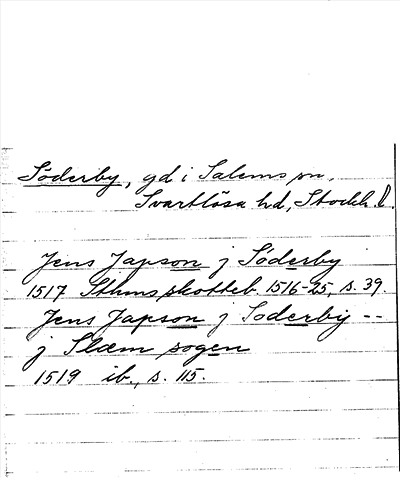 Söderby, gd i Salems sn,
Svartlösa hd, Stockh. l.
Jens Japson j Söderby
1517 Sthms skotteb. 1516-25, s. 39.
Jens Japson j Soderby --
j Slæm sogen
1519 ib., s. 115.